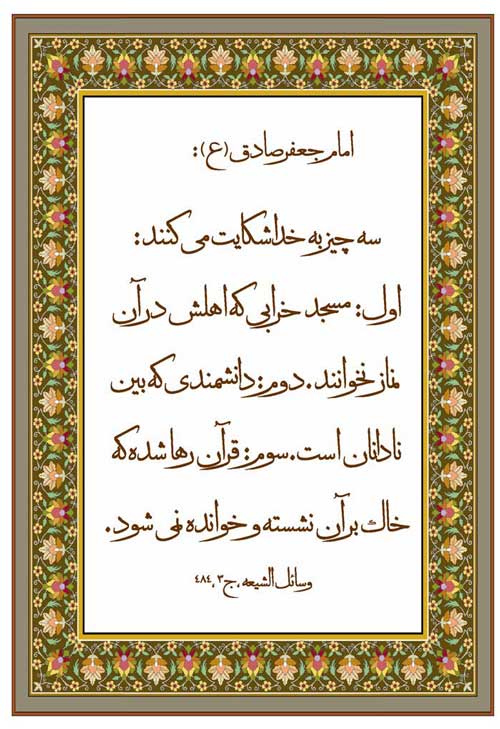 امام جعفر صادق (ع):
سه چیز به خدا شکایت می کنند:
اول: مسجد خرابی که اهلش در آن
نماز نخوانند. دوم: دانشمندی که بین
نادانان است. سوم: قرآن رها شده که
خاک بر آن نشسته و خوانده نمی شود.
وسائل الشیعه، ج۳، ۴۸۴